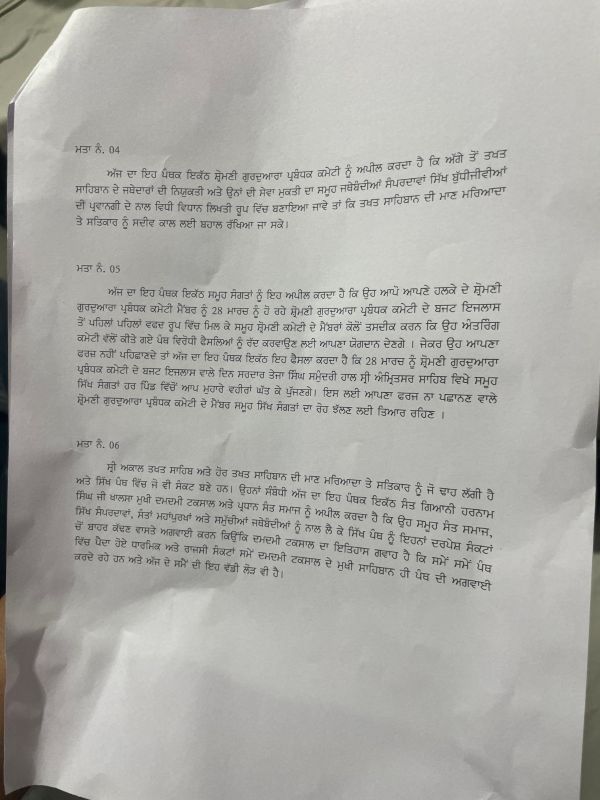 ਮਤਾ ਨੰ. 04
ਅੱਜ ਦਾ ਇਹ ਪੰਥਕ ਇਕੱਠ ਸ਼੍ਰੋਮਣੀ ਗੁਰਦੁਆਰਾ ਪ੍ਰਬੰਧਕ ਕਮੇਟੀ ਨੂੰ ਅਪੀਲ ਕਰਦਾ ਹੈ ਕਿ ਅੱਗੇ ਤੋਂ ਤਖਤ
ਸਾਹਿਬਾਨ ਦੇ ਜਥੇਦਾਰਾਂ ਦੀ ਨਿਯੁਕਤੀ ਅਤੇ ਉਨਾਂ ਦੀ ਸੇਵਾ ਮੁਕਤੀ ਦਾ ਸਮੂਹ ਜਥੇਬੰਦੀਆਂ ਸੰਪਰਦਾਵਾਂ ਸਿੱਖ ਬੁੱਧੀਜੀਵੀਆਂ
ਦੀ ਪ੍ਰਵਾਨਗੀ ਦੇ ਨਾਲ ਵਿਧੀ ਵਿਧਾਨ ਲਿਖਤੀ ਰੂਪ ਵਿੱਚ ਬਣਾਇਆ ਜਾਵੇ ਤਾਂ ਕਿ ਤਖਤ ਸਾਹਿਬਾਨ ਦੀ ਮਾਣ ਮਰਿਆਦਾ
ਤੇ ਸਤਿਕਾਰ ਨੂੰ ਸਦੀਵ ਕਾਲ ਲਈ ਬਹਾਲ ਰੱਖਿਆ ਜਾ ਸਕੇ।
ਮਤਾ ਨੰ. 05
ਅੱਜ ਦਾ ਇਹ ਪੰਥਕ ਇਕੱਠ ਸਮੂਹ ਸੰਗਤਾਂ ਨੂੰ ਇਹ ਅਪੀਲ ਕਰਦਾ ਹੈ ਕਿ ਉਹ ਆਪੋ ਆਪਣੇ ਹਲਕੇ ਦੇ ਸ਼੍ਰੋਮਣੀ
ਗੁਰਦੁਆਰਾ ਪ੍ਰਬੰਧਕ ਕਮੇਟੀ ਮੈਂਬਰ ਨੂੰ 28 ਮਾਰਚ ਨੂੰ ਹੋ ਰਹੇ ਸ਼੍ਰੋਮਣੀ ਗੁਰਦੁਆਰਾ ਪ੍ਰਬੰਧਕ ਕਮੇਟੀ ਦੇ ਬਜਟ ਇਜਲਾਸ
ਤੋਂ ਪਹਿਲਾਂ ਪਹਿਲਾਂ ਵਫਦ ਰੂਪ ਵਿੱਚ ਮਿਲ ਕੇ ਸਮੂਹ ਸ਼੍ਰੋਮਣੀ ਕਮੇਟੀ ਦੇ ਮੈਂਬਰਾਂ ਕੋਲੋਂ ਤਸਦੀਕ ਕਰਨ ਕਿ ਉਹ ਅੰਤਰਿੰਗ
ਕਮੇਟੀ ਵੱਲੋਂ ਕੀਤੇ ਗਏ ਪੰਥ ਵਿਰੋਧੀ ਫੈਸਲਿਆਂ ਨੂੰ ਰੱਦ ਕਰਵਾਉਣ ਲਈ ਆਪਣਾ ਯੋਗਦਾਨ ਦੇਣਗੇ । ਜੇਕਰ ਉਹ ਆਪਣਾ
ਫਰਜ਼ ਨਹੀਂ ਪਹਿਛਾਣਦੇ ਤਾਂ ਅੱਜ ਦਾ ਇਹ ਪੰਥਕ ਇਕੱਠ ਇਹ ਫੈਸਲਾ ਕਰਦਾ ਹੈ ਕਿ 28 ਮਾਰਚ ਨੂੰ ਸ਼੍ਰੋਮਣੀ ਗੁਰਦੁਆਰਾ
ਪ੍ਰਬੰਧਕ ਕਮੇਟੀ ਦੇ ਬਜਟ ਇਜਲਾਸ ਵਾਲੇ ਦਿਨ ਸਰਦਾਰ ਤੇਜਾ ਸਿੰਘ ਸਮੁੰਦਰੀ ਹਾਲ ਸ੍ਰੀ ਅੰਮ੍ਰਿਤਸਰ ਸਾਹਿਬ ਵਿਖੇ ਸਮੂਹ
ਸਿੱਖ ਸੰਗਤਾਂ ਹਰ ਪਿੰਡ ਵਿੱਚੋਂ ਆਪ ਮੁਹਾਰੇ ਵਹੀਰਾਂ ਘੱਤ ਕੇ ਪੁੱਜਣਗੇ। ਇਸ ਲਈ ਆਪਣਾ ਫਰਜ ਨਾ ਪਛਾਨਣ ਵਾਲੇ
ਸ਼੍ਰੋਮਣੀ ਗੁਰਦੁਆਰਾ ਪ੍ਰਬੰਧਕ ਕਮੇਟੀ ਦੇ ਮੈਂਬਰ ਸਮੂਹ ਸਿੱਖ ਸੰਗਤਾਂ ਦਾ ਰੋਹ ਝੱਲਣ ਲਈ ਤਿਆਰ ਰਹਿਣ ।
ਮਤਾ ਨੰ. 06
ਸ੍ਰੀ ਅਕਾਲ ਤਖਤ ਸਾਹਿਬ ਅਤੇ ਹੋਰ ਤਖਤ ਸਾਹਿਬਾਨ ਦੀ ਮਾਣ ਮਰਿਆਦਾ ਤੇ ਸਤਿਕਾਰ ਨੂੰ ਜੋ ਢਾਹ ਲੱਗੀ ਹੈ
ਅਤੇ ਸਿੱਖ ਪੰਥ ਵਿੱਚ ਜੋ ਵੀ ਸੰਕਟ ਬਣੇ ਹਨ। ਉਹਨਾਂ ਸੰਬੰਧੀ ਅੱਜ ਦਾ ਇਹ ਪੰਥਕ ਇਕੱਠ ਸੰਤ ਗਿਆਨੀ ਹਰਨਾਮ
ਸਿੰਘ ਜੀ ਖਾਲਸਾ ਮੁਖੀ ਦਮਦਮੀ ਟਕਸਾਲ ਅਤੇ ਪ੍ਰਧਾਨ ਸੰਤ ਸਮਾਜ ਨੂੰ ਅਪੀਲ ਕਰਦਾ ਹੈ ਕਿ ਉਹ ਸਮੂਹ ਸੰਤ ਸਮਾਜ,
ਸਿੱਖ ਸੰਪਰਦਾਵਾਂ, ਸੰਤਾਂ ਮਹਾਂਪੁਰਖਾਂ ਅਤੇ ਸਮੁੱਚੀਆਂ ਜਥੇਬੰਦੀਆਂ ਨੂੰ ਨਾਲ ਲੈ ਕੇ ਸਿੱਖ ਪੰਥ ਨੂੰ ਇਹਨਾਂ ਦਰਪੇਸ਼ ਸੰਕਟਾਂ
ਚੋਂ ਬਾਹਰ ਕੱਢਣ ਵਾਸਤੇ ਅਗਵਾਈ ਕਰਨ ਕਿਉਂਕਿ ਦਮਦਮੀ ਟਕਸਾਲ ਦਾ ਇਤਿਹਾਸ ਗਵਾਹ ਹੈ ਕਿ ਸਮੇਂ ਸਮੇਂ ਪੰਥ
ਵਿੱਚ ਪੈਦਾ ਹੋਏ ਧਾਰਮਿਕ ਅਤੇ ਰਾਜਸੀ ਸੰਕਟਾਂ ਸਮੇਂ ਦਮਦਮੀ ਟਕਸਾਲ ਦੇ ਮੁਖੀ ਸਾਹਿਬਾਨ ਹੀ ਪੰਥ ਦੀ ਅਗਵਾਈ
ਕਰਦੇ ਰਹੇ ਹਨ ਅਤੇ ਅੱਜ ਦੇ ਸਮੇਂ ਦੀ ਇਹ ਵੱਡੀ ਲੋੜ ਵੀ ਹੈ।